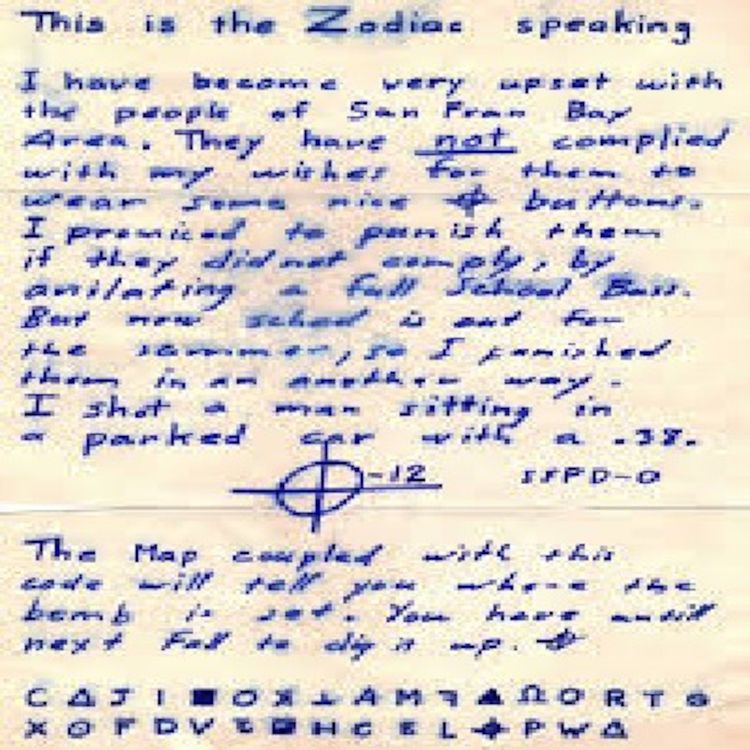 This is the Zodiac speaking
I have become very upset with
the people of San Fran Bay
Area. They have not complied
with my wishes for them to
wear some nice ⌖ buttons.
I promiced to punish them
if they did not comply, by
anilating a full School Buss.
But now school is out for
the summer, so I punished
them in an another way.
I shot a man sitting in
a parked car with a .38.
⌖-12 SFPD-0
The Map coupled with this
code will tell you where the
bomb is set. You have untill
next Fall to dig it up. ⌖
C Δ J I ■ O ꓘ ⊥ A M ▲ Ω O R T
X O F D V H C E L ⌖ P W Δ